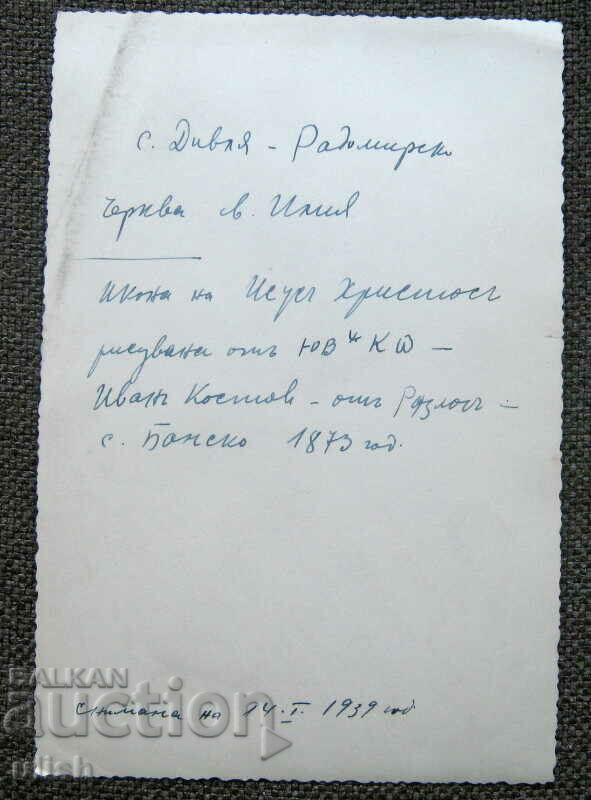 с. Дивля - Радомирско
Черква св. Илия
Икона на Исусъ Христосъ
рисувана отъ
Иванъ Костов - отъ Разлогъ -
с. Банско 1873 год.
Снимана на 14.I.1939 год
BALKAN
auction
ulish